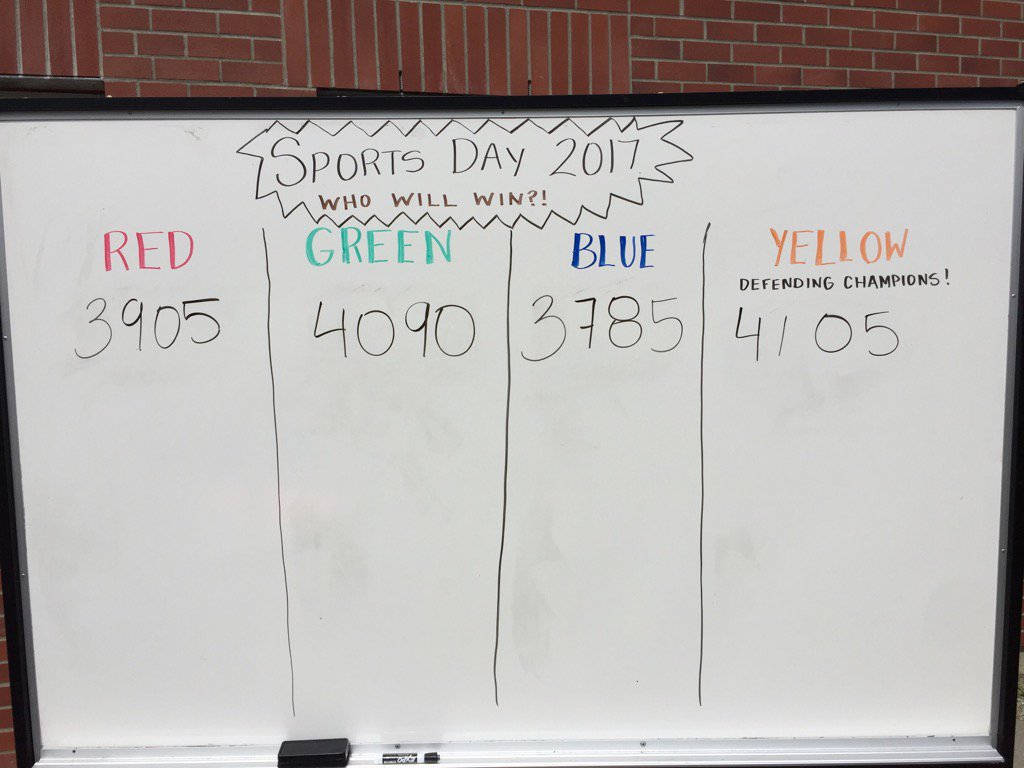 SPORTS DAY 2017
WHO WILL WIN?!
RED
3905
GREEN
4090
BLUE
3785
YELLOW
DEFENDING CHAMPIONS!
4105
EXPO